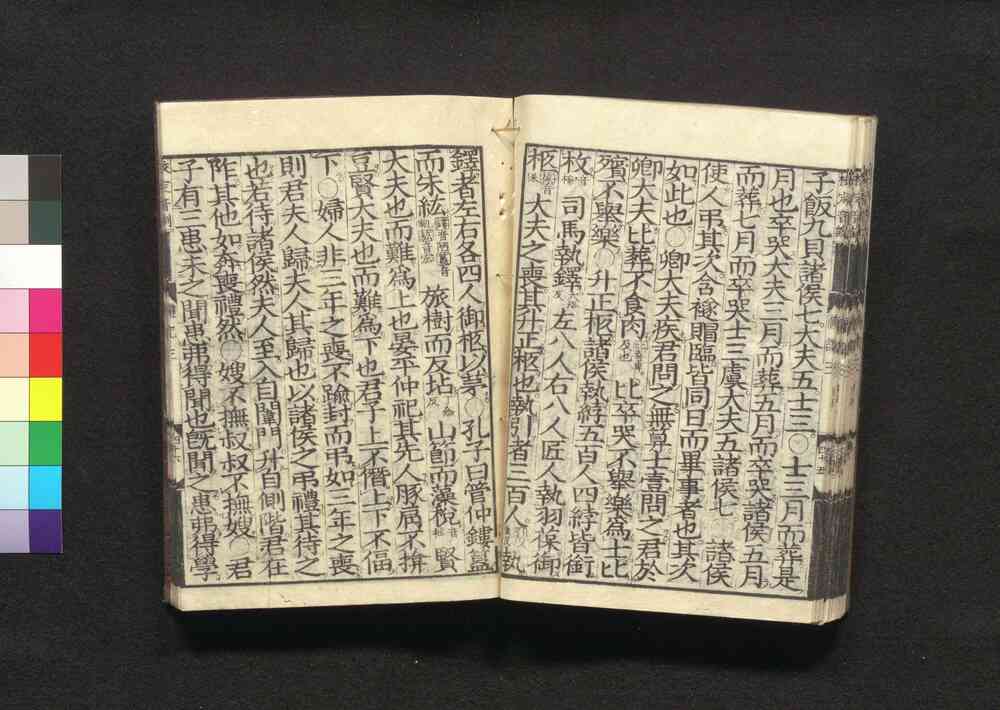 子飯九貝諸侯七大夫五士三○士三月而葬是
月也卒哭大夫三月而葬五月而卒哭諸侯五月
而葬七月而卒哭士三虞大夫五諸侯七○諸侯
使人弔其次含襚賵臨皆同日而畢事者也其次
如此也○卿大夫疾君問之無筭士壹問之君於
卿大夫比葬不食肉比卒哭不舉樂為士比
殯不舉樂○升正柩諸侯執綍五百人四綍皆銜
枚司馬執鐸左八人右八人匠人執羽葆御
柩大夫之喪其升正柩也執引者三百人執
鐸者左右各四人御柩以茅○孔子曰管仲鏤簋
而朱紘旅樹而反坫山節而藻梲賢
大夫也而難為上也晏平仲祀其先人豚肩不揜
豆賢大夫也而難為下也君子上不僭上下不偪
下○婦人非三年之喪不踰封而弔如三年之喪
則君夫人歸夫人其歸也以諸侯之弔禮其待之
也若待諸侯然夫人至入自闈門升自側階君在
阼其他如奔喪禮然○嫂不撫叔叔不撫嫂○君
子有三患未之聞患弗得聞也既聞之患弗得學